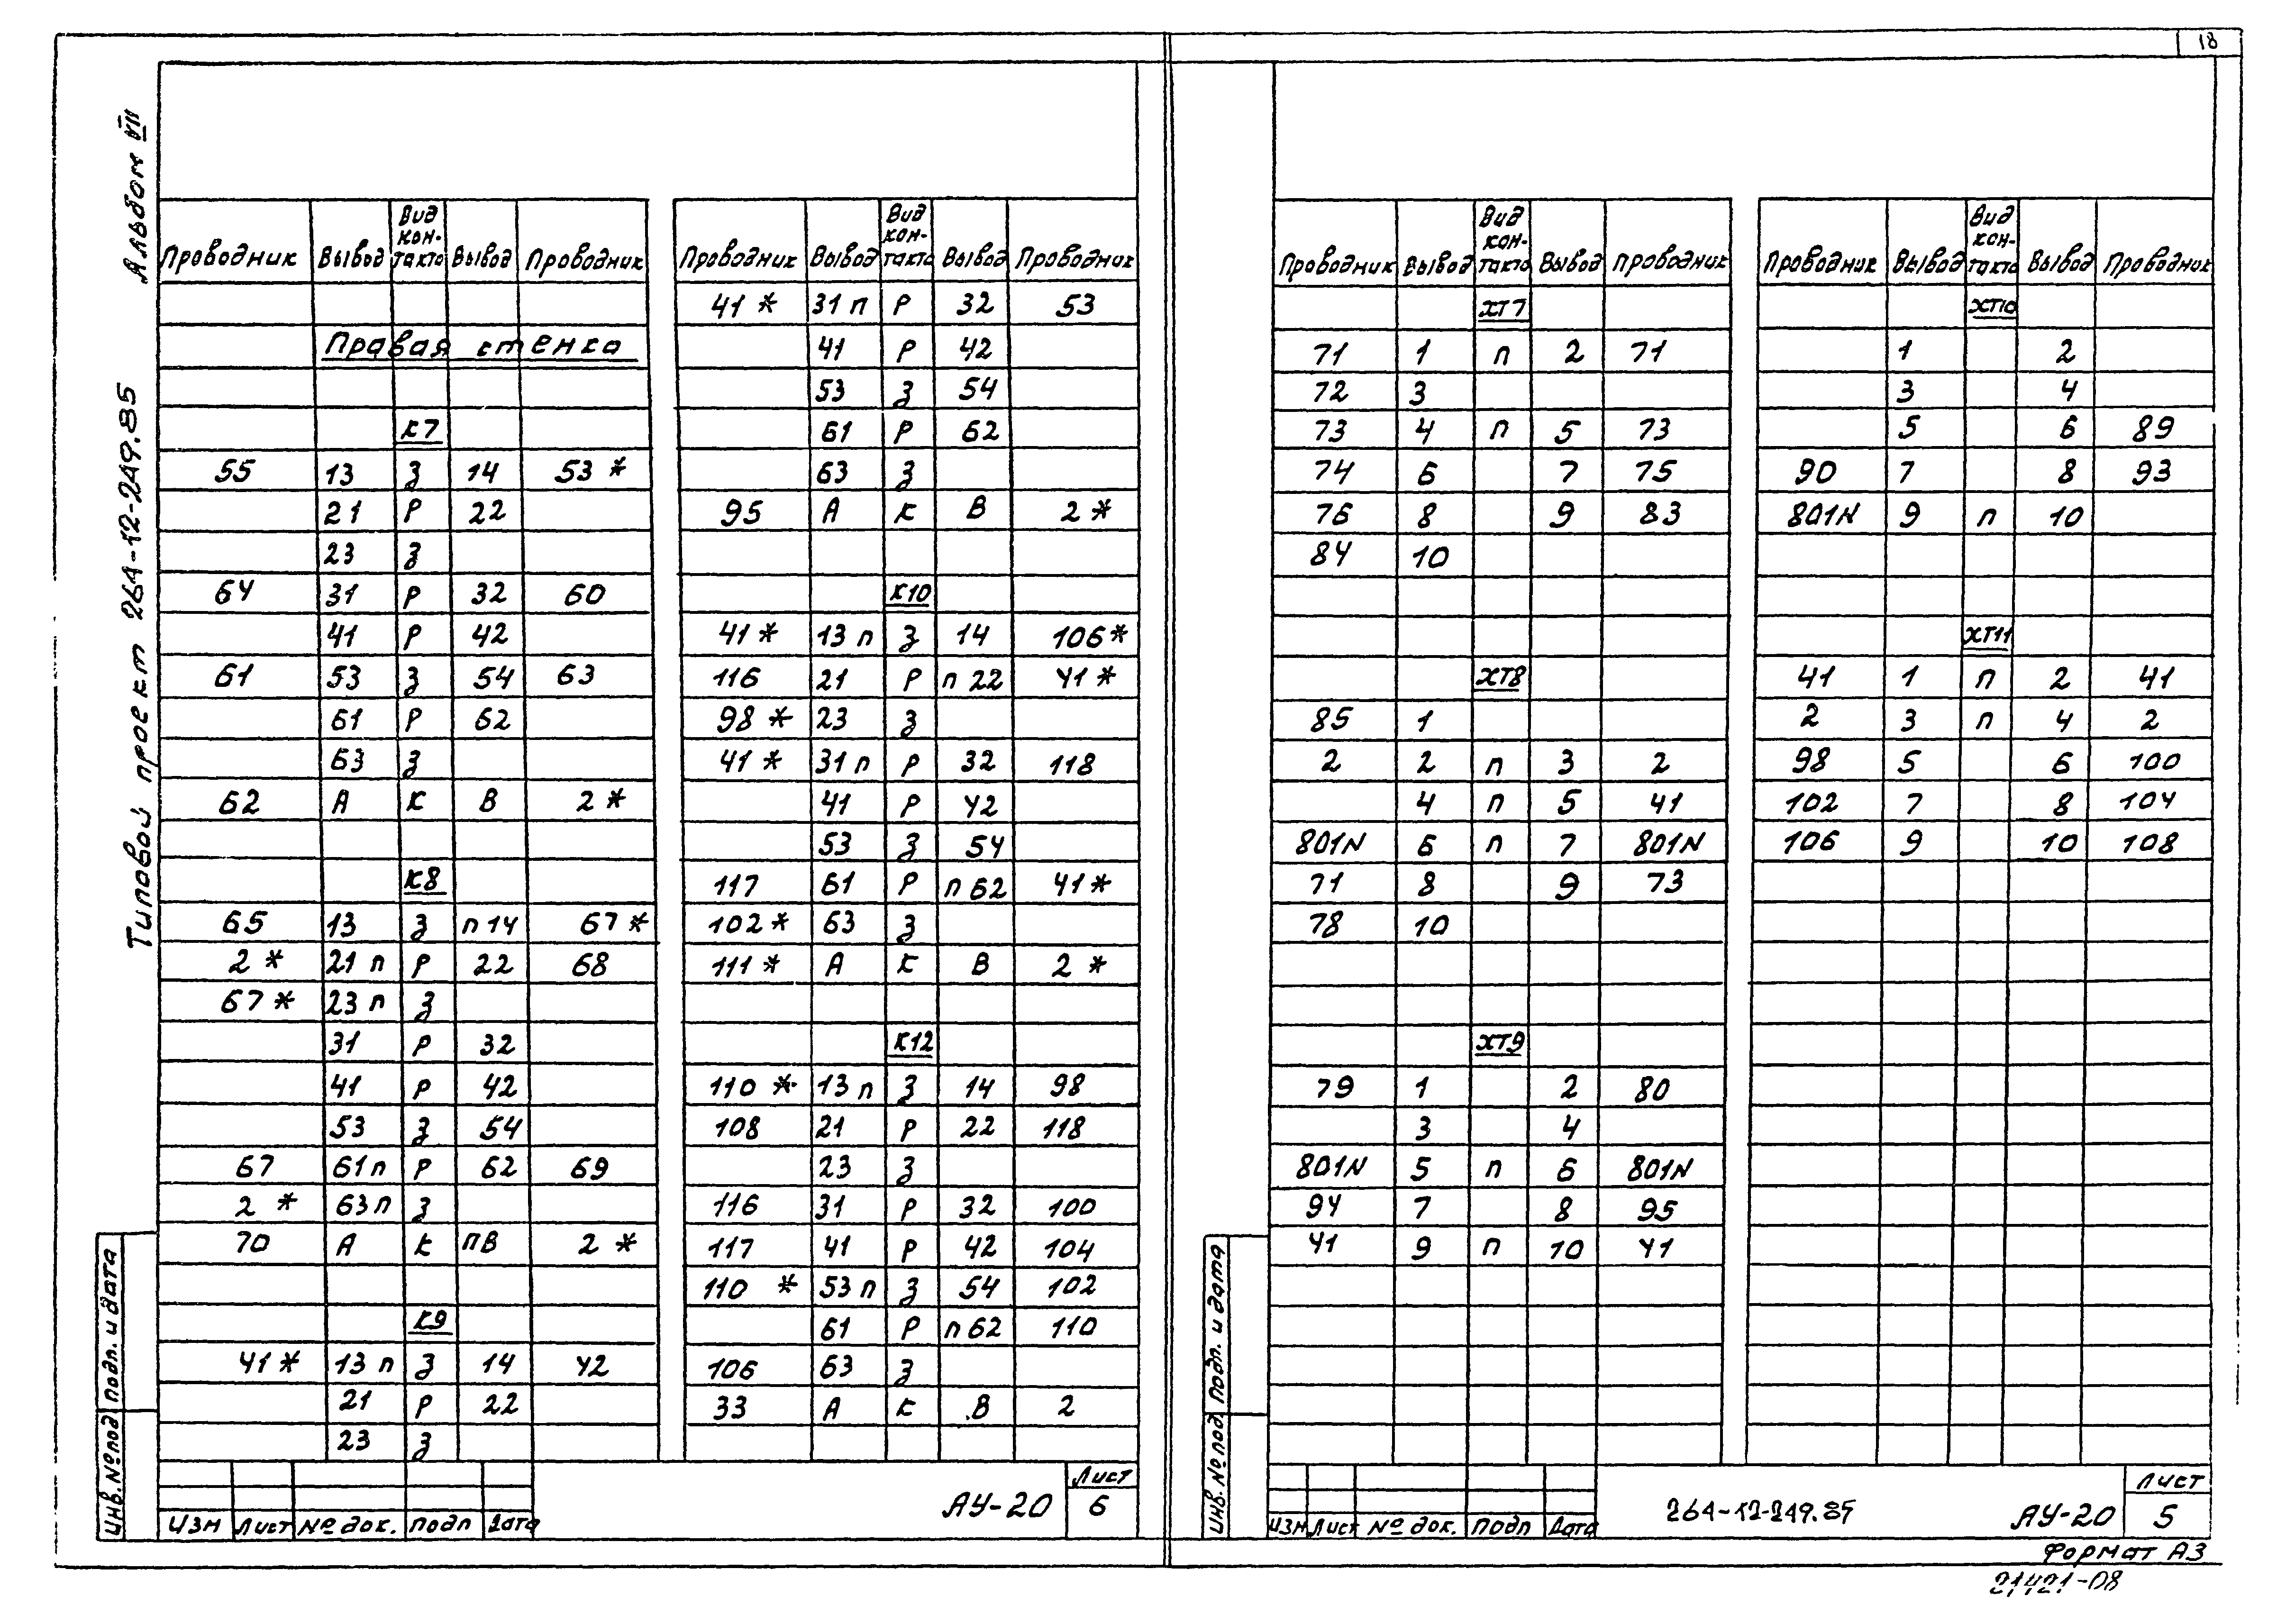 18
Альбом VII
Типовой проект 264-12-249.85
Проводник Вывод Вид кон-такта Вывод Проводник
Правая стенка
К7
55 13 З 14 53*
21 Р 22
23 З
64 31 Р 32 60
41 Р 42
61 53 З 54 63
61 Р 62
63 З
62 А К В 2*
К8
65 13 З п 14 67*
2* 21 п Р 22 68
67* 23 п З
31 Р 32
41 Р 42
53 З 54
67 61 п Р 62 69
2* 63 п З
70 А К ПВ 2*
К9
41* 13 п З 14 42
21 Р 22
23 З
Проводник Вывод Вид кон-такта Вывод Проводник
41* 31 п Р 32 53
41 Р 42
53 З 54
61 Р 62
63 З
95 А К В 2*
К10
41* 13 п З 14 106*
116 21 Р п 22 41*
98* 23 З
41* 31 п Р 32 118
41 Р 42
53 З 54
117 61 Р п 62 41*
102* 63 З
111* А К В 2*
К12
110* 13 п З 14 98
108 21 Р 22 118
23 З
116 31 Р 32 100
117 41 Р 42 104
110* 53 п З 54 102
61 Р п 62 110
106 63 З
33 А К В 2
Инв.№под Подп. и дата
Изм Лист № док. Подп Дата
АУ-20
Лист
6
Проводник Вывод Вид кон-такта Вывод Проводник
ХТ7
71 1 п 2 71
72 3
73 4 п 5 73
74 6 7 75
76 8 9 83
84 10
ХТ8
85 1
2 2 п 3 2
4 п 5 41
801N 6 п 7 801N
71 8 9 73
78 10
ХТ9
79 1 2 80
3 4
801N 5 п 6 801N
94 7 8 95
41 9 п 10 41
Проводник Вывод Вид кон-такта Вывод Проводник
ХТ10
1 2
3 4
5 6 89
90 7 8 93
801N 9 п 10
ХТ11
41 1 п 2 41
2 3 п 4 2
98 5 6 100
102 7 8 104
106 9 10 108
Инв.№под Подп. и дата
Изм Лист № док. Подп Дата
264-12-249.85
АУ-20
Лист
5
Формат А3
21421-08